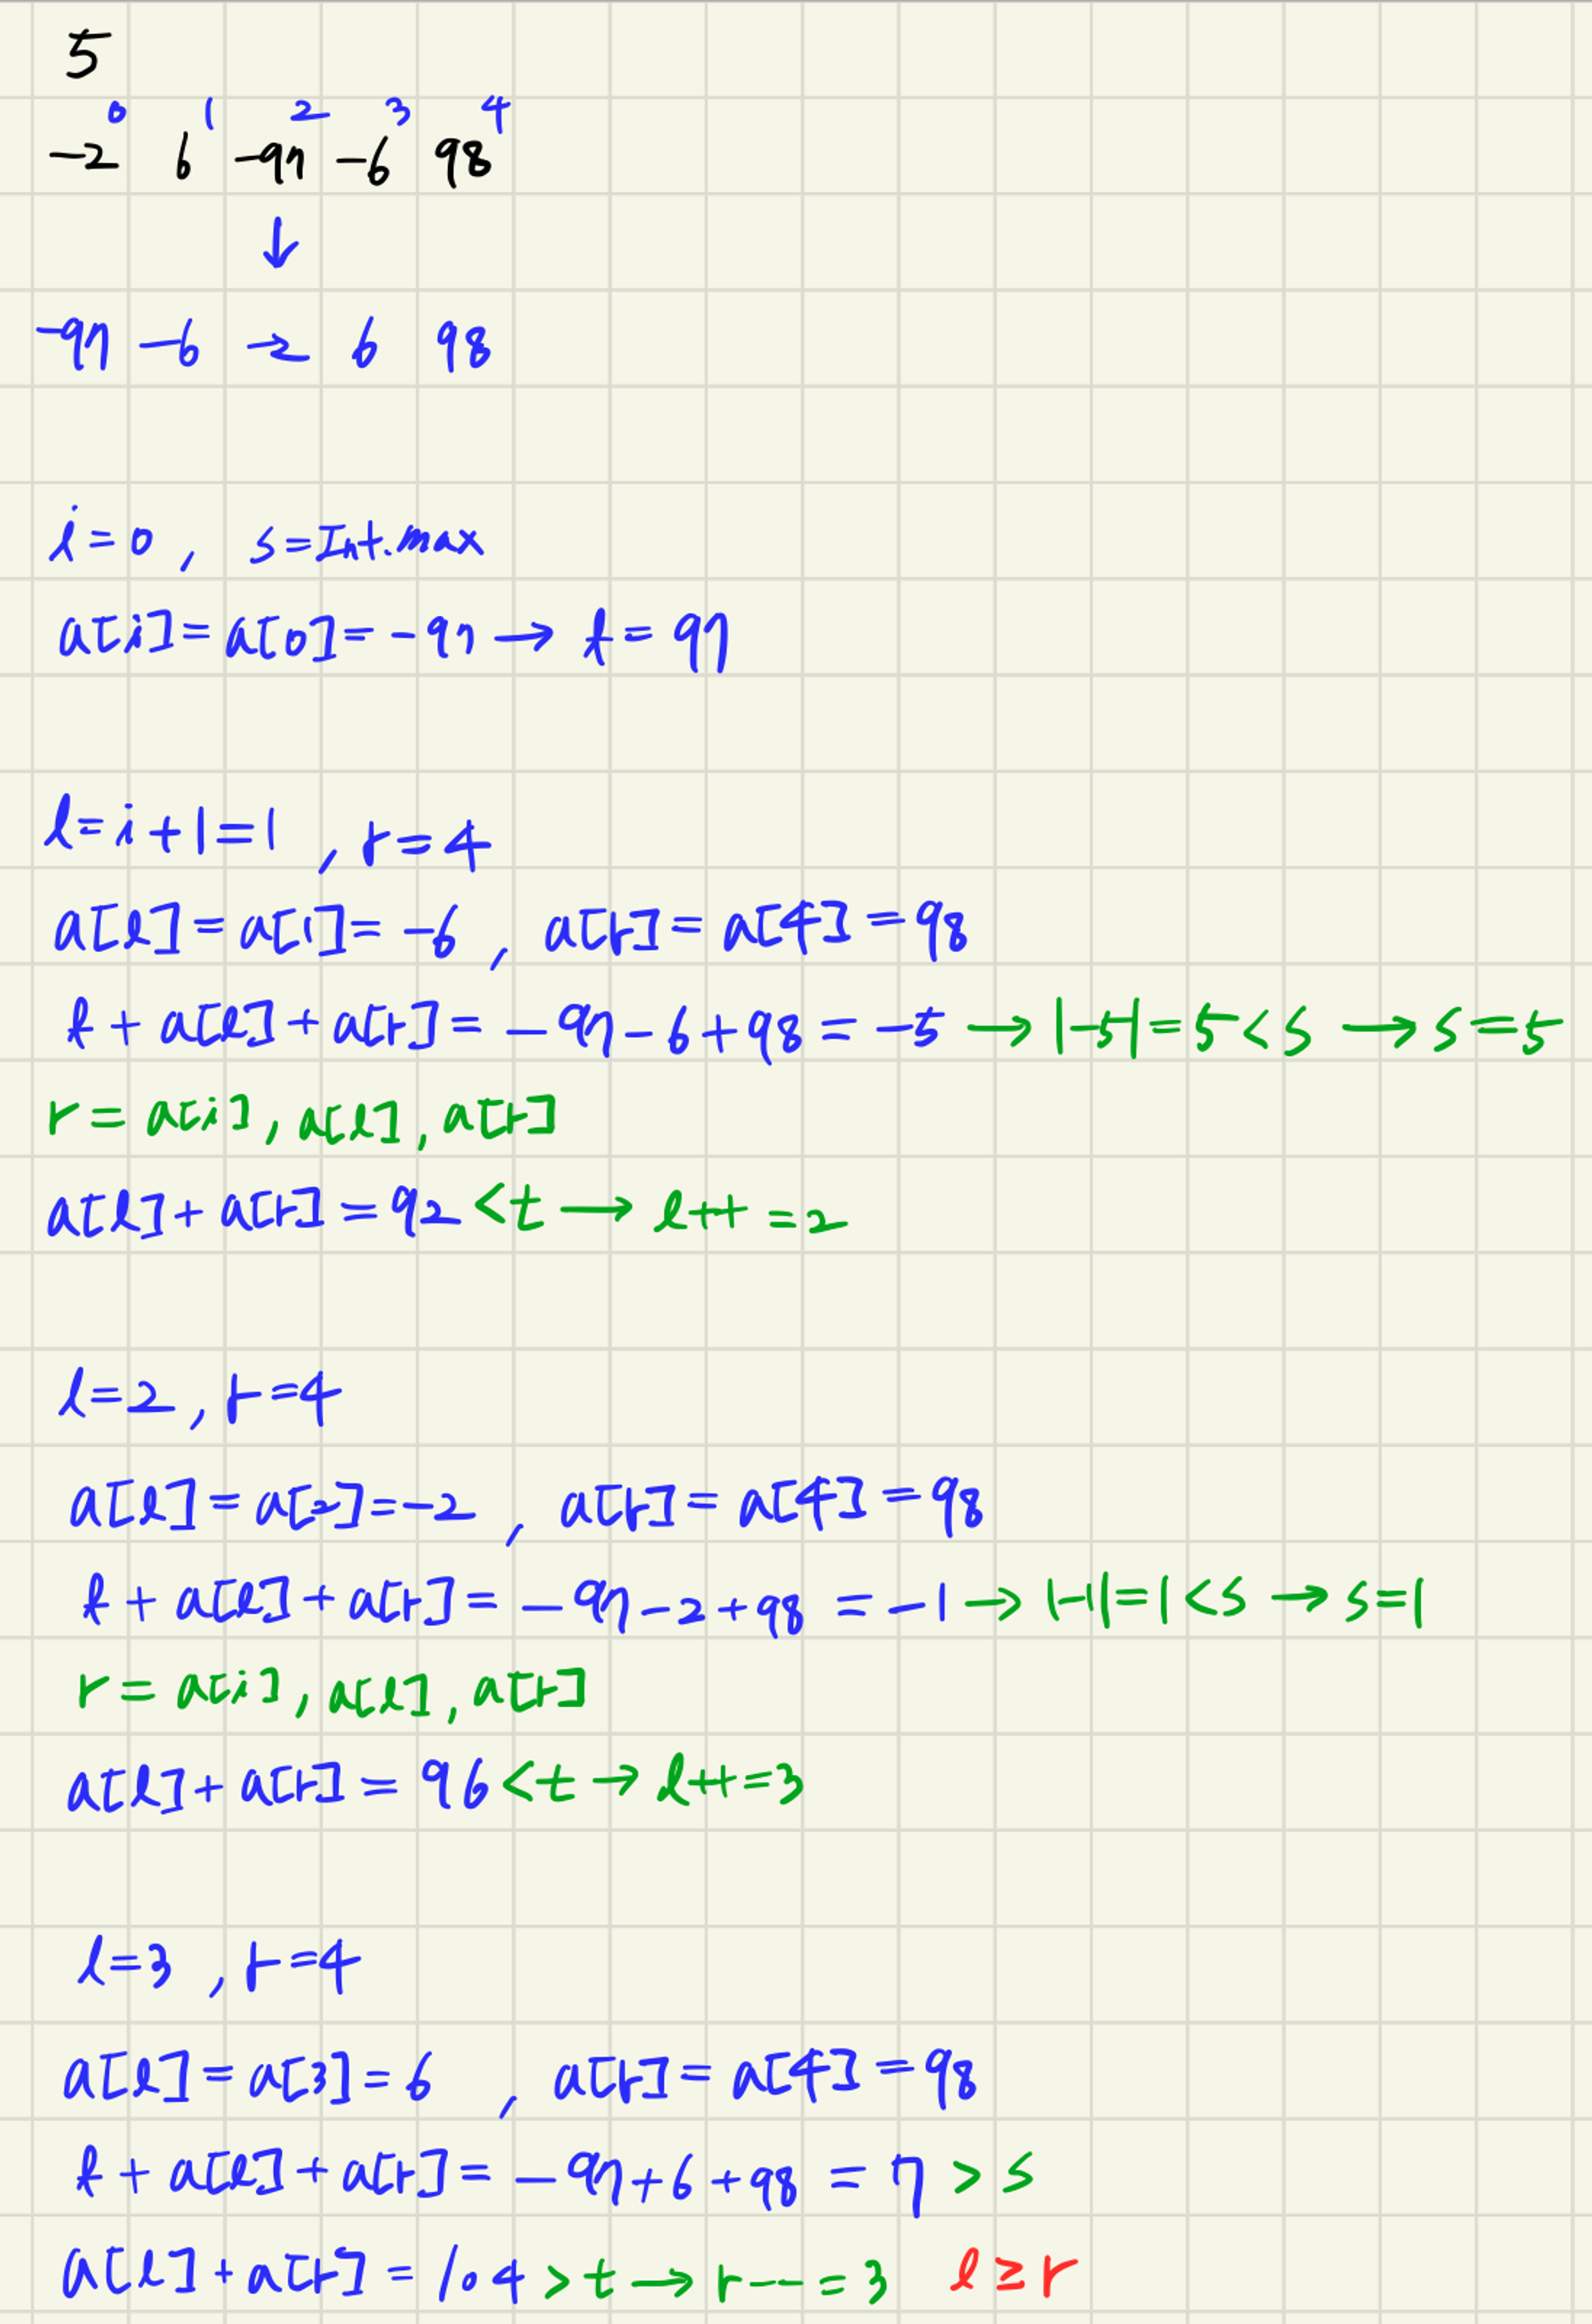 5
0 1 2 3 4
-2 6 -97 -6 98
↓
-97 -6 -2 6 98
i=0, s=Int.max
a[i]=a[0]=-97→t=97
l=i+1=1, r=4
a[l]=a[1]=-6, a[r]=a[4]=98
t+a[l]+a[r]=-97-6+98=-5→|-5|=5<s→s=5
r=a[i],a[l],a[r]
a[l]+a[r]=92<t→l++=2
l=2, r=4
a[l]=a[2]=-2, a[r]=a[4]=98
t+a[l]+a[r]=-97-2+98=-1→|-1|=1<s→s=1
r=a[i],a[l],a[r]
a[l]+a[r]=96<t→l++=3
l=3, r=4
a[l]=a[3]=6, a[r]=a[4]=98
t+a[l]+a[r]=-97+6+98=7>s
a[l]+a[r]=104>t→r--=3 l≥r